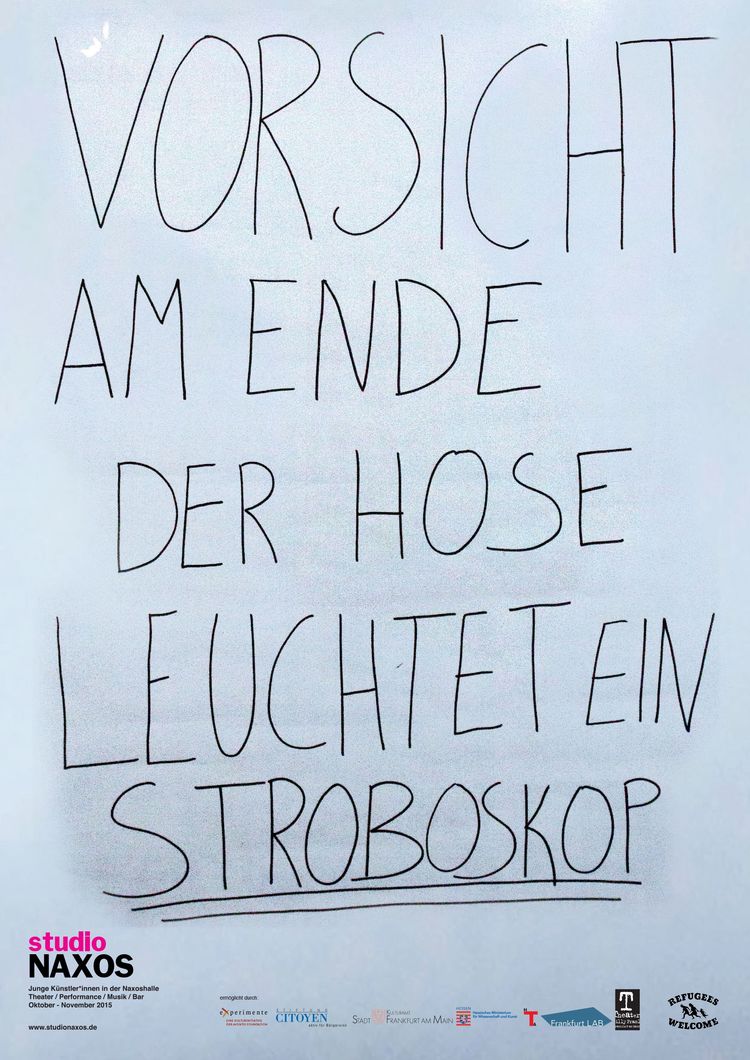 VORSICHT
AM ENDE
DER HOSE
LEUCHTET EIN
STROBOSKOP
studio
NAXOS
Junge Künstler*innen in der Naxoshalle
Theater / Performance / Musik / Bar
Oktober - November 2015
www.studionaxos.de
ermöglicht durch:
experimente
CITOYEN
aktiv für Bürgersinn
STADT FRANKFURT AM MAIN
KULTURAMT
HESSEN
Hessisches Ministerium
für Wissenschaft und Kunst
T
Frankfurt LAB
T
Theater
Willy Praml
REFUGEES
WELCOME